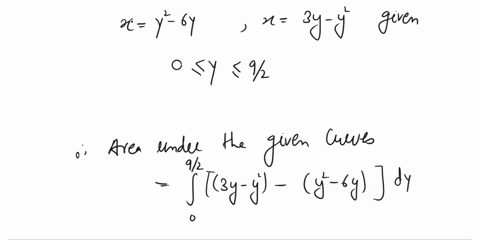 x = y² - 6y , x = 3y - y² given
0 ≤ y ≤ 9/2
∴ Area under the given curves
= ∫₀^{9/2} [(3y - y²) - (y² - 6y)] dy